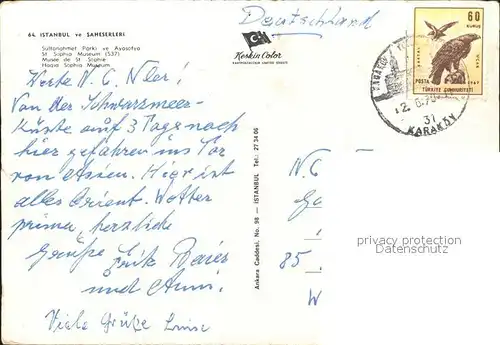 64. ISTANBUL ve ŞAHESERLERİ
Sultanahmet Parkı ve Ayasofya
St Sophia Museum (537)
Musée de St Sophie
Hagia Sophia Museum
Keskin Color
Deutschland
60
KURUŞ
POSTA
TÜRKİYE CUMHURİYETİ
37
KARAKÖY
Werte
Von der Schwarzmeer-
Küste auf 3 Tage noch
hier gefahren ins Tor
von Asien. Hier ist
alles Orient. Wetter
prima, herzliche
Grüße
und Anni.
Viele Grüße
Ankara Caddesi, No. 98 — ISTANBUL Tel.: 27 34 06
85
W
privacy protection
Datenschutz